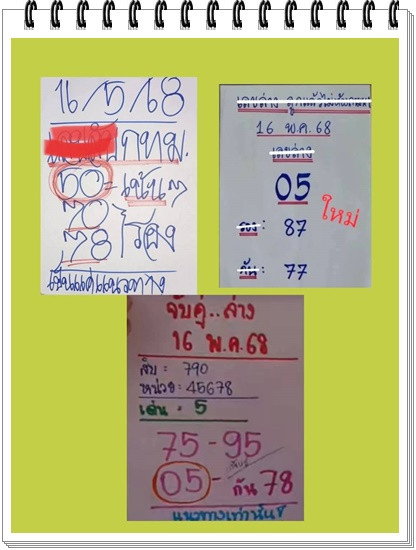 16/5/68
กทม.
50 = เน้นๆ
70
78 โรลง
เป็นแค่แนวทาง
เลขล่าง
16 พ.ค. 68
เลขล่าง
05
ใหม่
รอง : 87
กัน : 77
จับคู่..ล่าง
16 พ.ค. 68
สิบ : 790
หน่วย : 45678
เด่น : 5
75 - 95
05 - กัน 78
แนวทางเท่านั้น